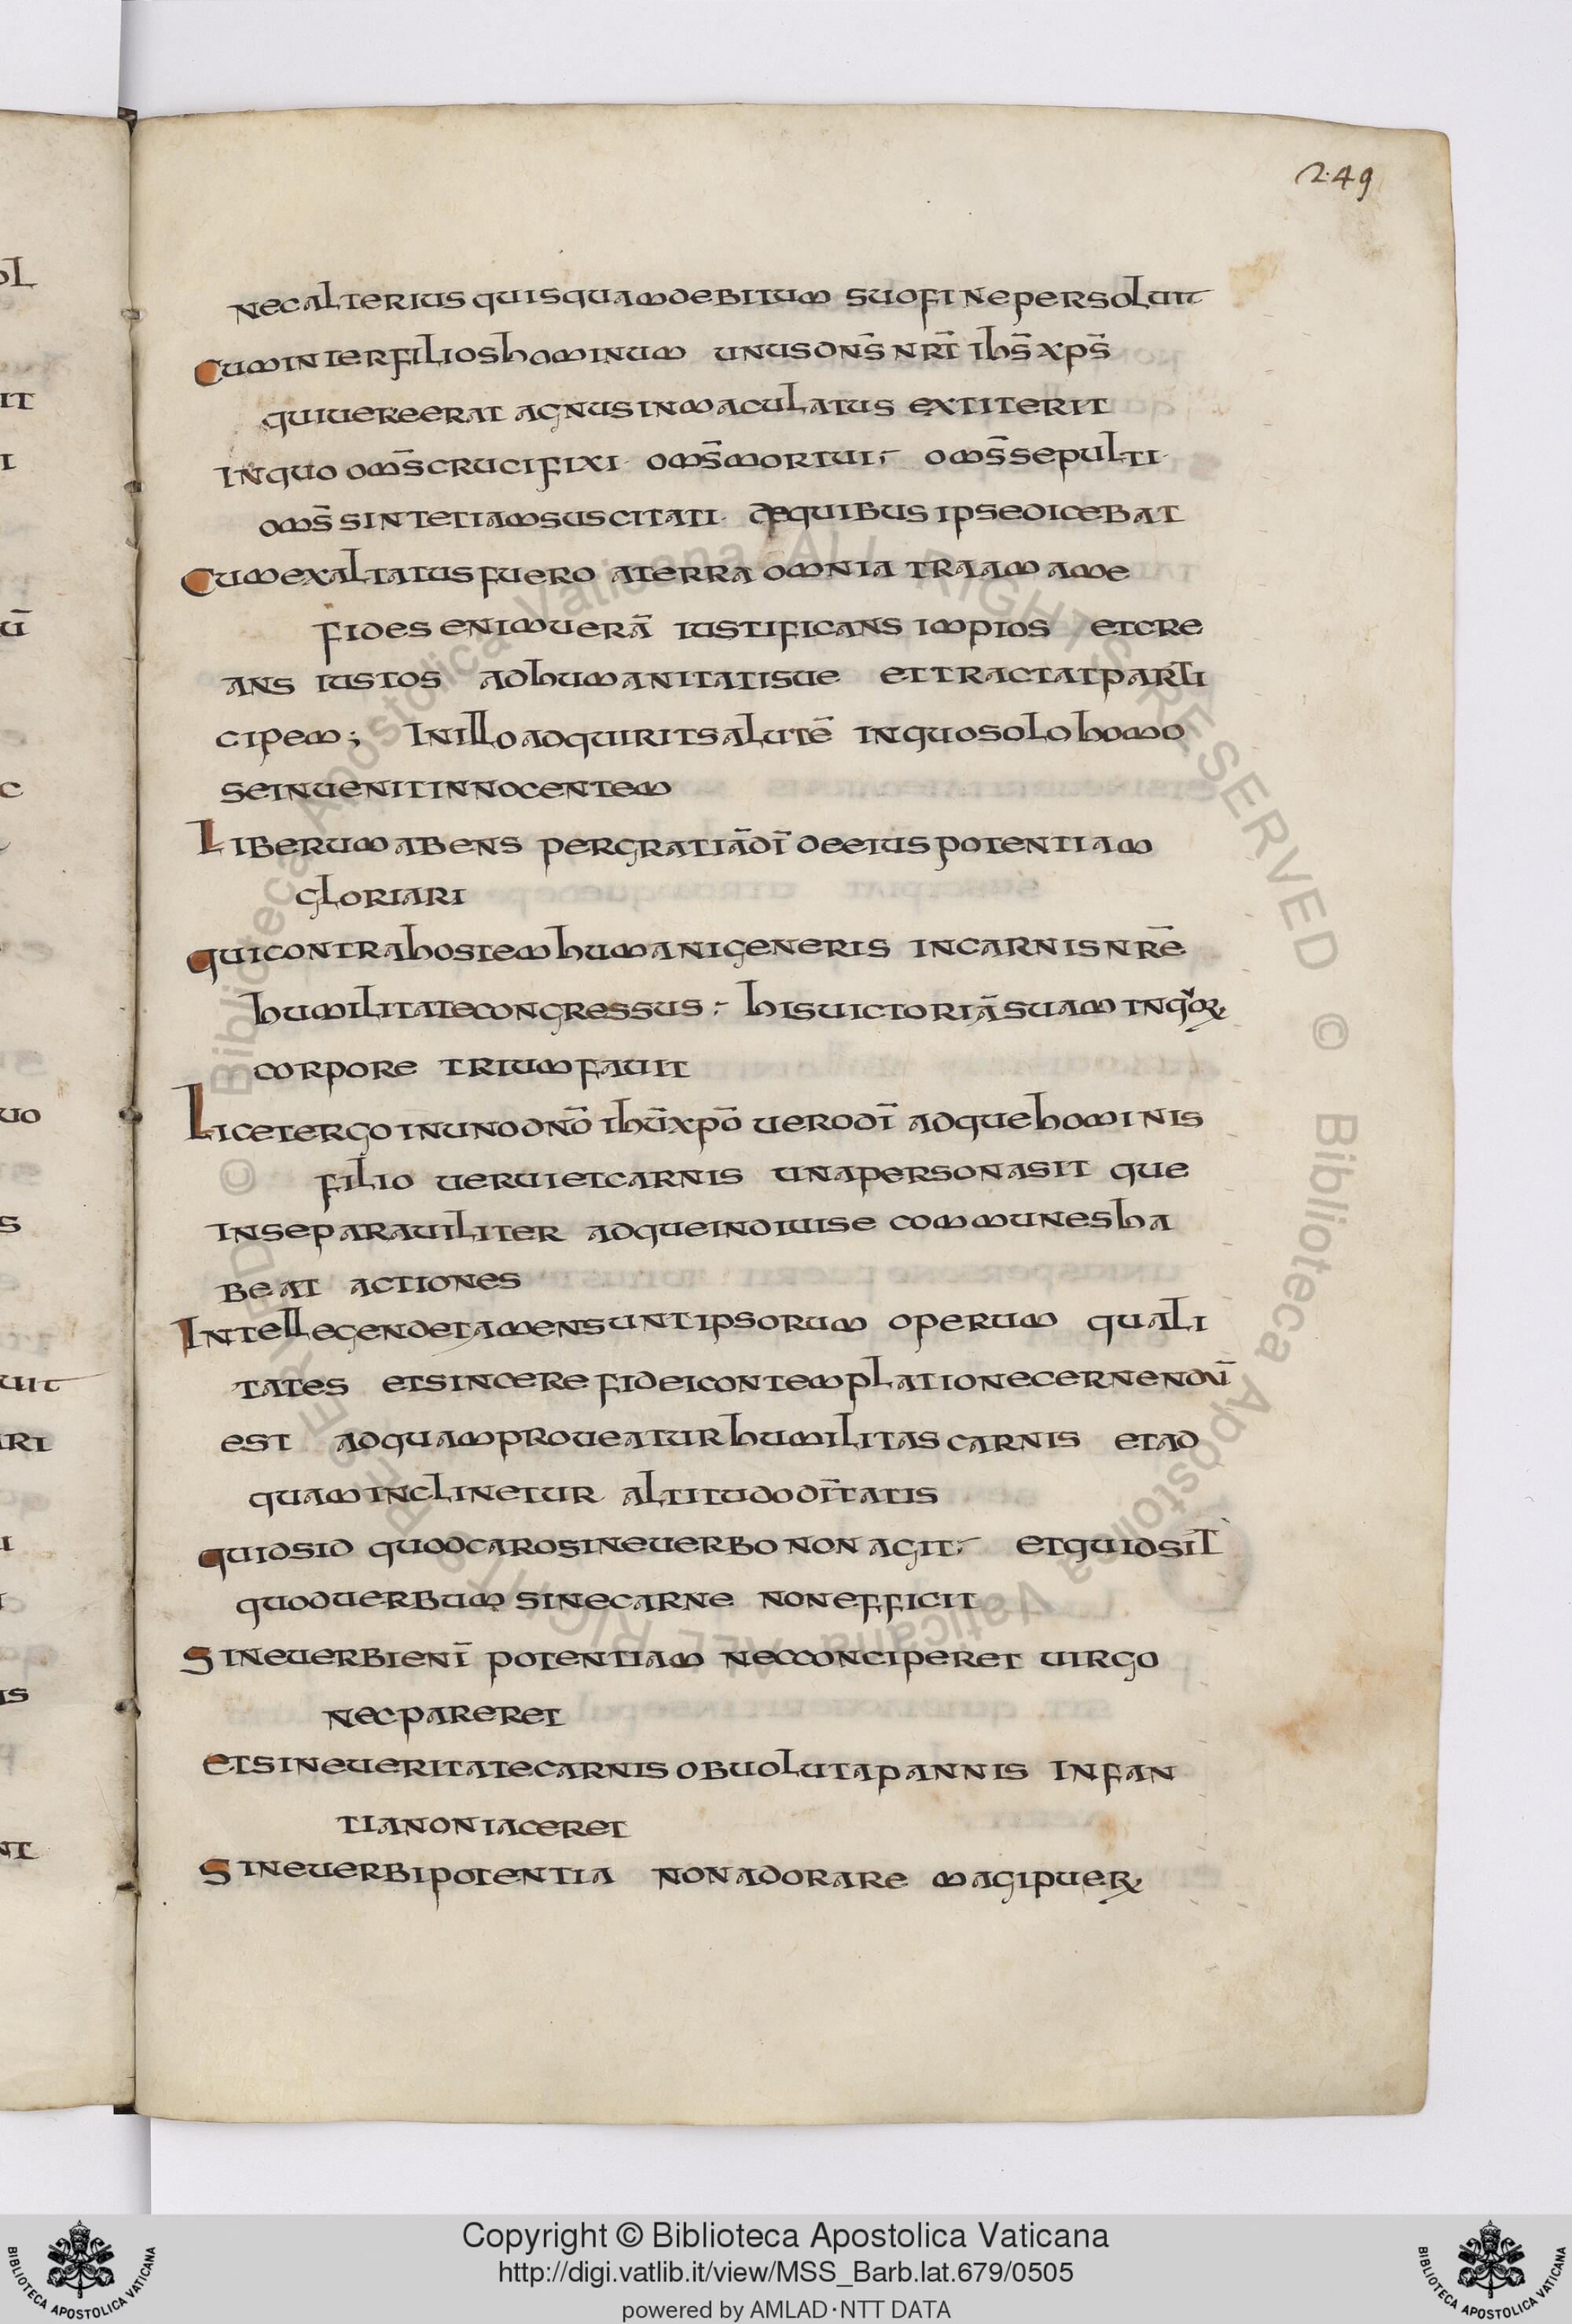 249
nec alterius quisquam debitum suo fine persoluit
Cum inter filios hominum unus dn̄s nr̄i ihs̄ xps̄
qui uere erat agnus inmaculatus extiterit
In quo oms̄ crucifixi· oms̄ mortui; oms̄ sepulti·
oms̄ sint etiam suscitati· de quibus ipse dicebat
Cum exaltatus fuero a terra omnia traam a me
fides enim uerā iustificans impios et cre
ans iustos ad humanitatis ue et tractat parti
cipem; In illo adquirit salutē in quo solo homo
se inuenit innocentem
Liberum abens per gratiā dī de eius potentiam
gloriari
qui contra hostem humani generis in carnis nrē
humilitate congressus; his uictoriā suam in quoꝝ
corpore triumfauit
Licet ergo in uno dnō ihū xpō uero dī adque hominis
filio uerui et carnis una persona sit que
inseparauiliter adque indiuise communes ha
beat actiones
Intellegende tamen sunt ipsorum operum quali
tates et sincere fidei contemplatione cernendū
est ad quam proueatur humilitas carnis et ad
quam inclinetur altitudo dītatis
quid sid quod caro sine uerbo non agit; et quid sit
quod uerbum sine carne non efficit
Sine uerbi enī potentiam nec conciperet uirgo
nec pareret
et sine ueritate carnis obuoluta pannis infan
tia non iaceret
Sine uerbi potentia non adorare magi pueꝝ
Copyright © Biblioteca Apostolica Vaticana
http://digi.vatlib.it/view/MSS_Barb.lat.679/0505
powered by AMLAD·NTT DATA